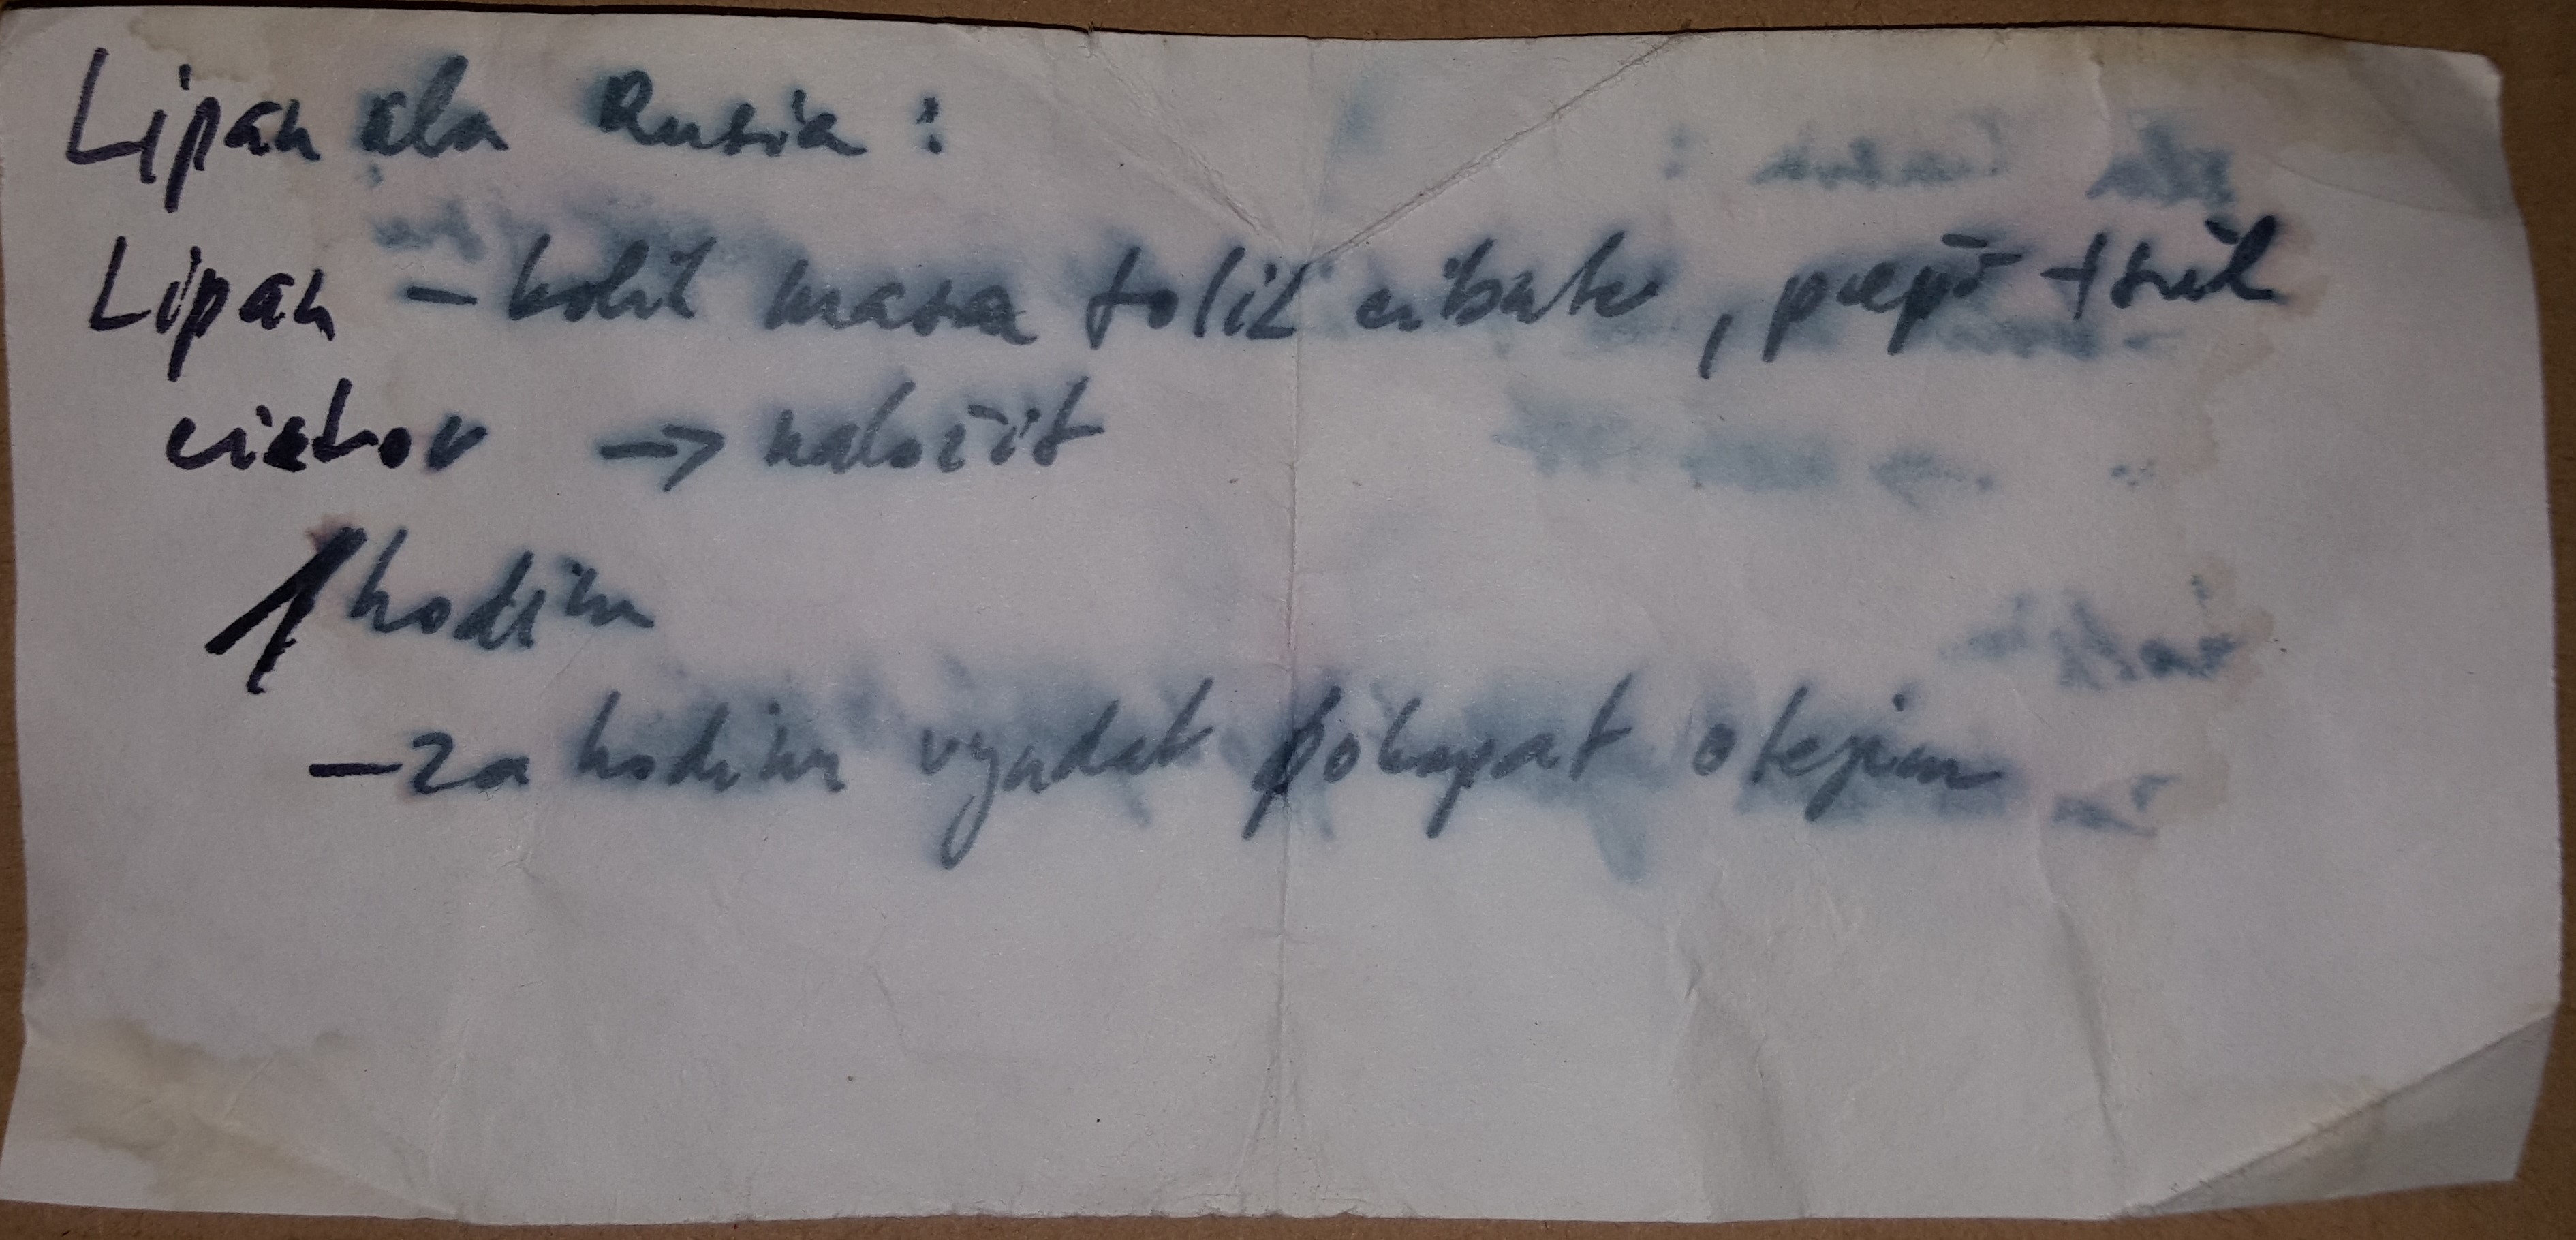 Lipan ala Rusia :
Lipan - kolik masa tolik cibule, pepř + sůl
citron → naložit
1 hodinu
- za hodinu vyndat pokapat olejem